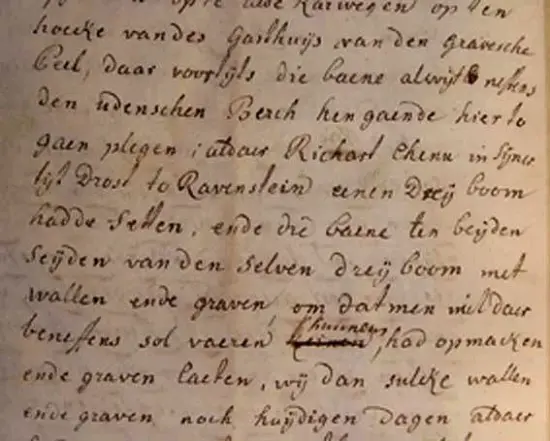 op te alde Karwegen op ten
hoecke van des Gasthuijs van den Gravesche
Peel, daar voortijts die baene alwijt neffens
den udenschen Berch hengaende hier to
gaen plegen; aldaer Richart Chenu in sijner
tijt Drost to Ravenstein eenen Dreij boom
hadde setten, ende die baene ten beijden
seijden van den selven dreij boom met
wallen ende graven, om dat men niet daer
beneffens sol vaeren hunnen, had opmacken
ende graven laeten, wij dan sulcke wallen
ende graven noch huijdigen dagen aldaer